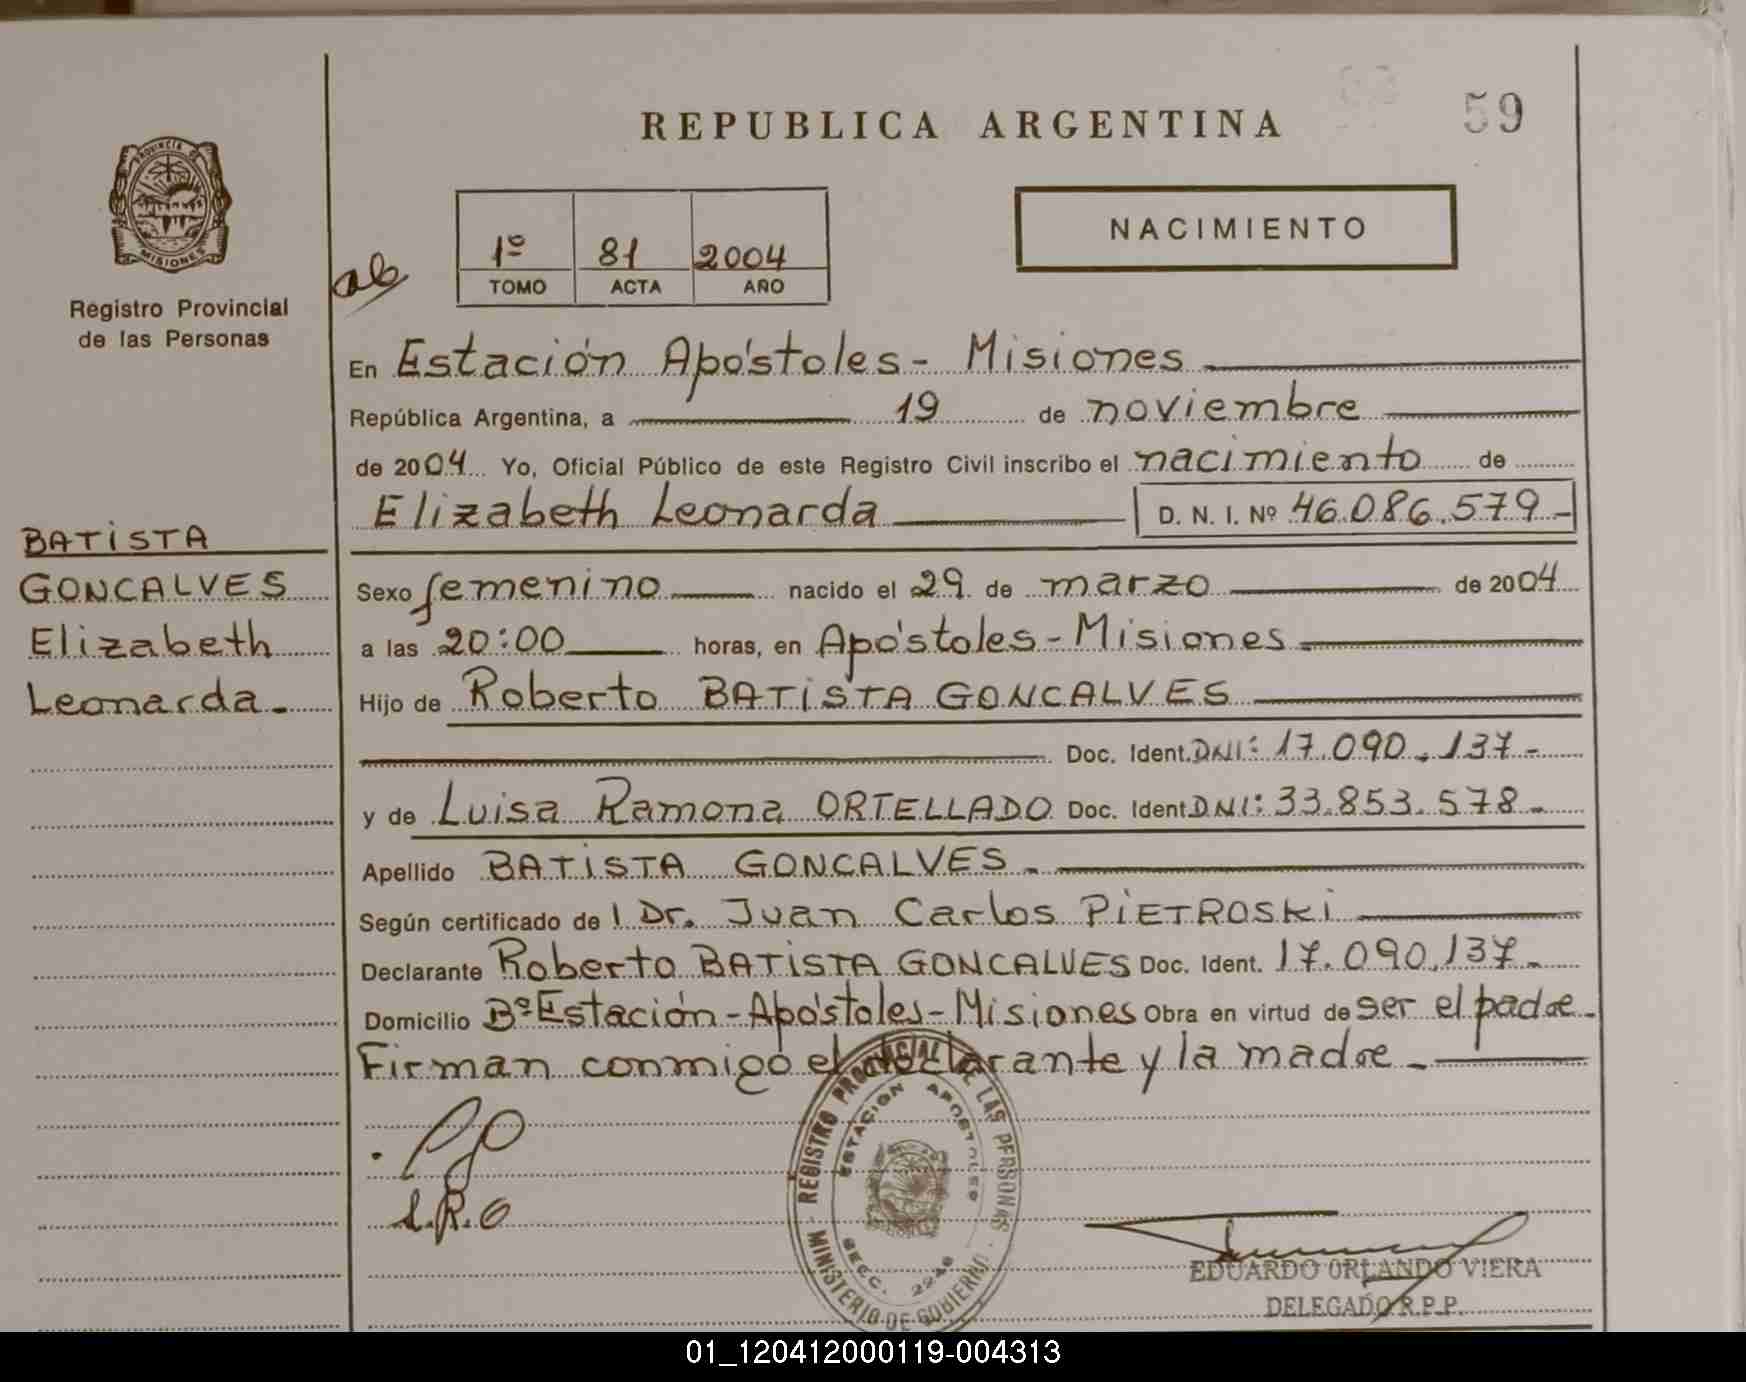 REPUBLICA ARGENTINA
59
PROVINCIA DE
MISIONES
Registro Provincial
de las Personas
1º 81 2004
TOMO ACTA AÑO
NACIMIENTO
En Estación Apóstoles - Misiones
República Argentina, a 19 de noviembre
de 2004 Yo, Oficial Público de este Registro Civil inscribo el nacimiento de
Elizabeth Leonarda D. N. I. Nº 46.086.579-
BATISTA
GONCALVES
Elizabeth
Leonarda.-
Sexo femenino nacido el 29 de marzo de 2004
a las 20:00 horas, en Apóstoles - Misiones
Hijo de Roberto BATISTA GONCALVES
Doc. Ident. DNI: 17.090.137-
y de Luisa Ramona ORTELLADO Doc. Ident DNI: 33.853.578.-
Apellido BATISTA GONCALVES.-
Según certificado del Dr. Juan Carlos PIETROSKI
Declarante Roberto BATISTA GONCALVES Doc. Ident. 17.090.137.-
Domicilio Bº Estación - Apóstoles - Misiones Obra en virtud de ser el padre.-
Firman conmigo el declarante y la madre.-
L.R.O
REGISTRO PROVINCIAL DE LAS PERSONAS
ESTACION APOSTOLES
SECC. 2246
MINISTERIO DE GOBIERNO
EDUARDO ORLANDO VIERA
DELEGADO R.P.P.
01_120412000119-004313